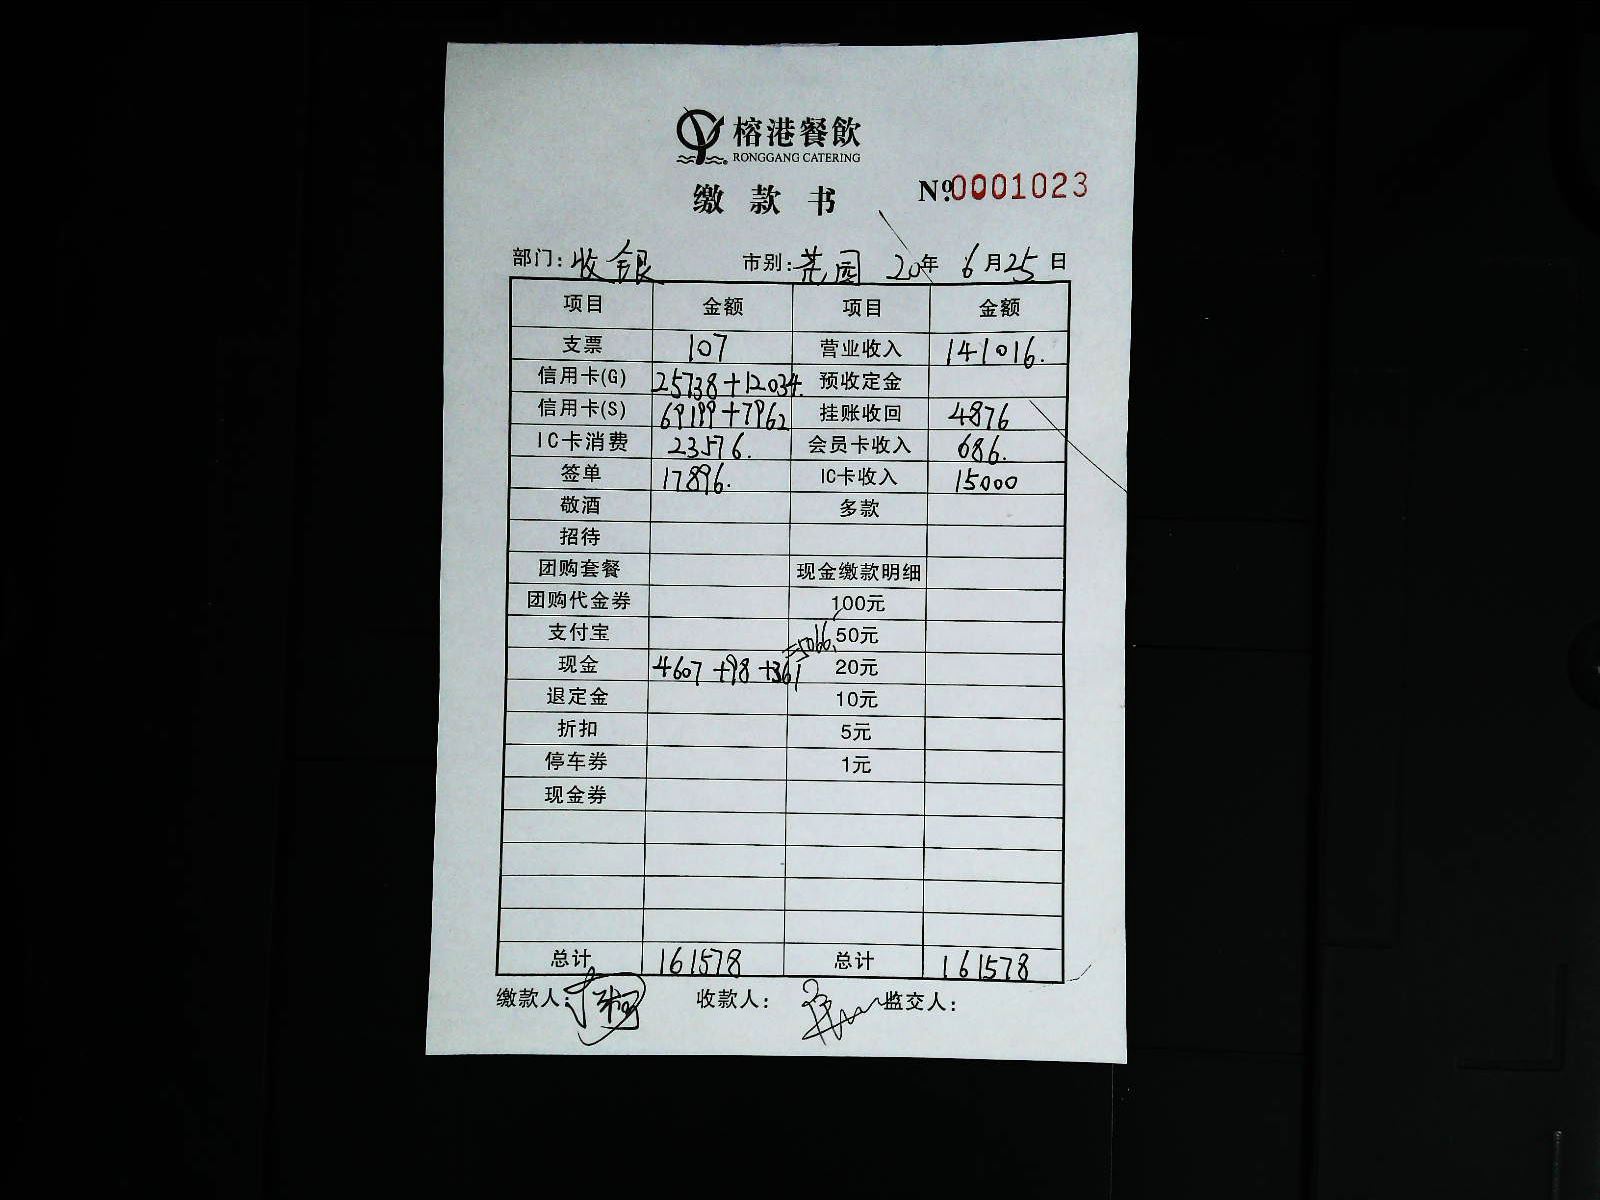 榕港餐飲
RONGGANG CATERING
缴款书 №0001023
部门：收银 市别： 20年 6月25日
项目 金额 项目 金额
支票 107 营业收入 141016.
信用卡(G) 25738+12034. 预收定金
信用卡(S) 69199+7962 挂账收回 4876
IC卡消费 23576. 会员卡收入 686.
签单 17896. IC卡收入 15000
敬酒 多款
招待
团购套餐 现金缴款明细
团购代金券 100元
支付宝 =5066. 50元
现金 4607+98+361 20元
退定金 10元
折扣 5元
停车券 1元
现金券
总计 161578 总计 161578
缴款人： 收款人： 监交人：